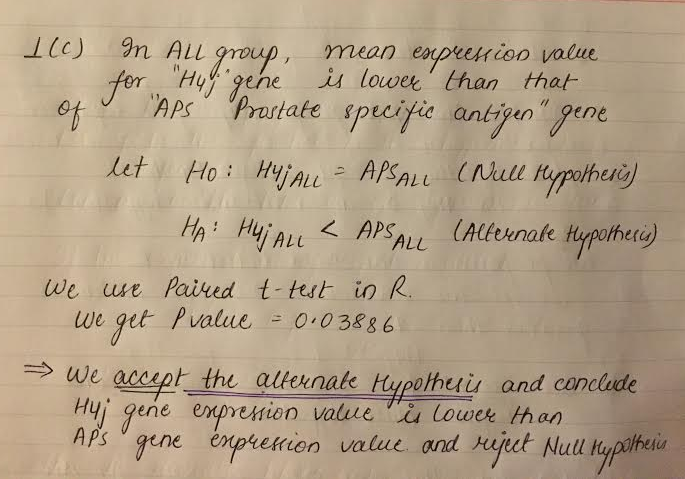 1(c) In ALL group, mean expression value
for "H4j" gene is lower than that
of "APS Prostate specific antigen" gene
let H0 : H4jALL = APSALL (Null Hypothesis)
HA : H4jALL < APSALL (Alternate Hypothesis)
We use Paired t-test in R.
We get Pvalue = 0.03886
⇒ We accept the alternate Hypothesis and conclude
H4j gene expression value is lower than
APS gene expression value and reject Null Hypothesis